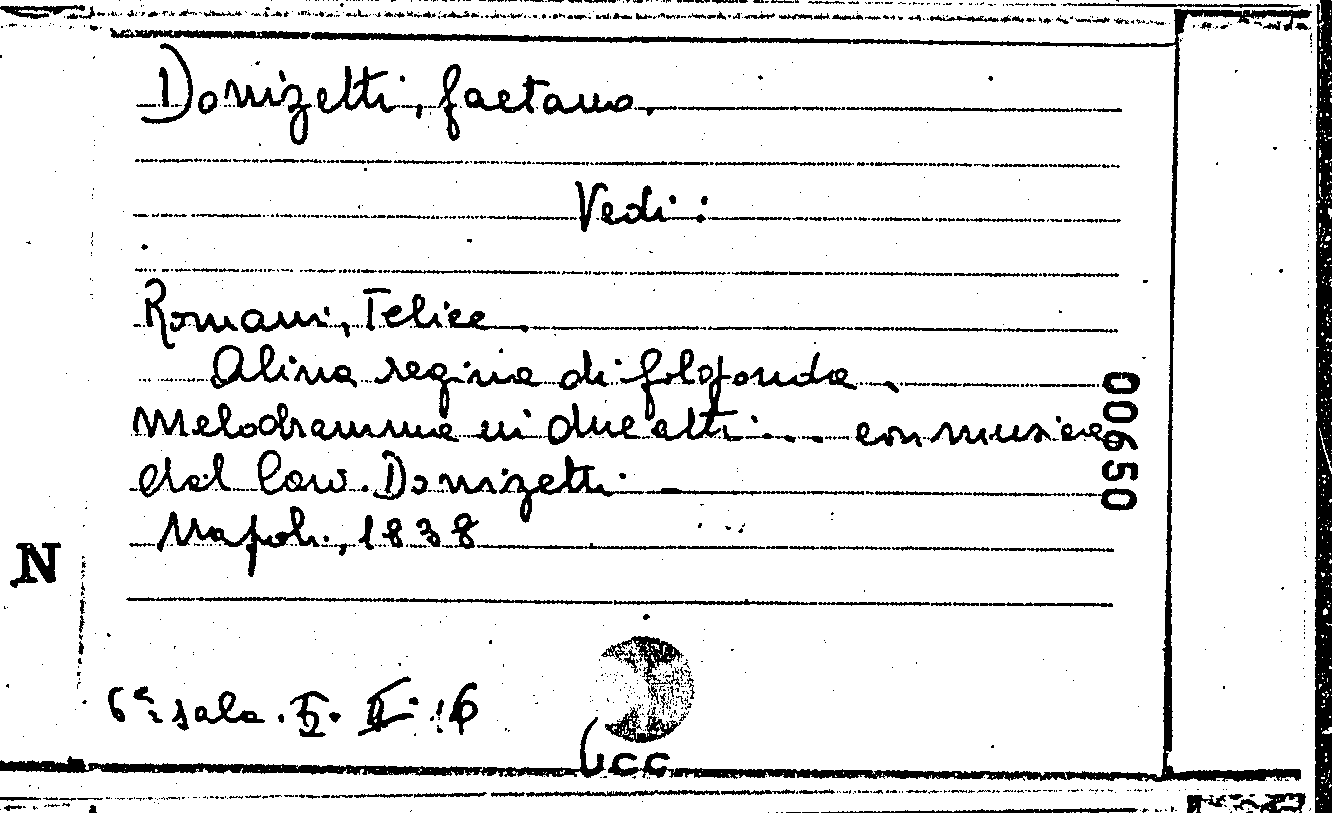 Donizetti, Gaetano.
Vedi:
Romani, Felice.
Alina regina di Golgonda.
Melodramma in due atti.... con musica
del Cav. Donizetti. -
Napoli, 1838
00650
N
6ª sala.
ucc